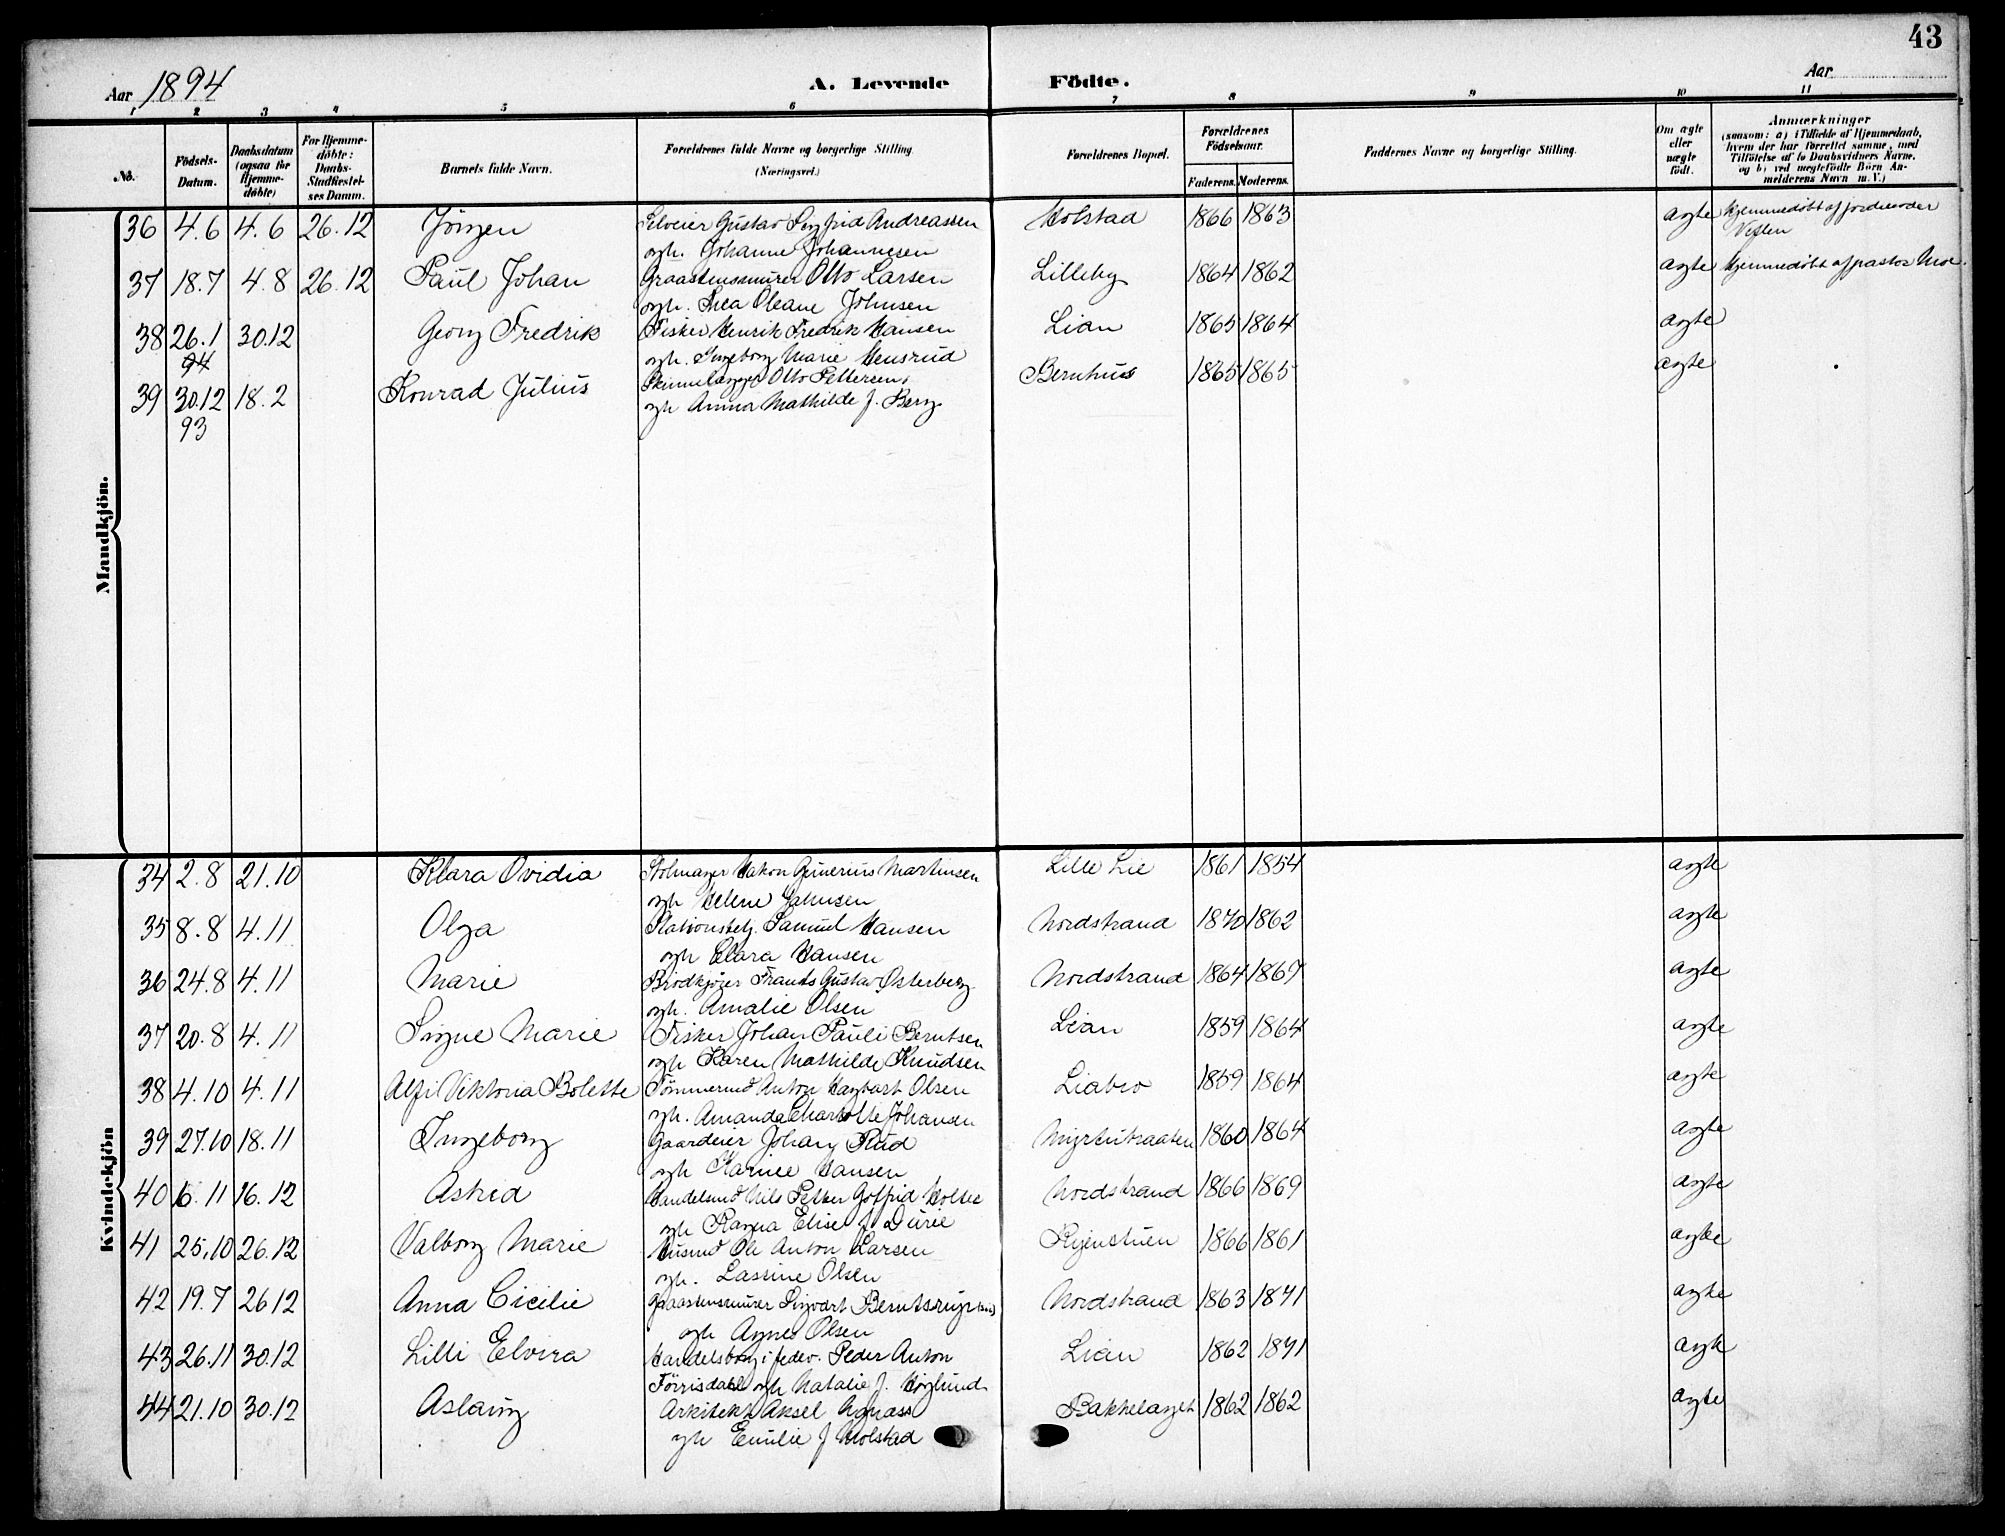 43
Aar 1894
A. Levende Födte.
Aar
1 2 3 4 5 6 7 8 9 10 11
No.
Födsels-Datum.
Daabsdatum (ogsaa for Hjemme-döbte)
For Hjemme-döbte: Daabs-Stadfestel-ses Datum.
Barnets fulde Navn.
Forældrenes fulde Navne og borgerlige Stilling (Næringsvei.)
Forældrenes Bopæl.
Forældrenes Födselsaar.
Faderens. Moderens.
Faddernes Navne og borgerlige Stilling.
Om ægte eller uægte födt.
Anmærkninger
(saasom: a) i Tilfælde af Hjemmedaab, hvem der har forrettet samme, med Tilföielse af to Daabsvidners Navne, og b) ved uægtefödte Börn Anmelderens Navn m. V.)
Mandkjön.
36 4.6 4.6 26.12 Jörgen Gustav Andreassen Holstad 1866 1863 ægte Hjemmedøbt af jordmoder
ogh. Johanne Johannesen
37 18.7 4.8 26.12 Paul Johan Graastensmurer Otto Larsen Lilleby 1864 1862 ægte Hjemmedøbt af pastor Moe.
ogh. Thea Oleane Johnsen
38 26.1 94 30.12 Georg Fredrik Fisker Henrik Fredrik Hansen Lian 1865 1864 ægte
ogh. Ingeborg Marie Hensrud
39 30.12 93 18.2 Konrad Julius Otto Pettersen Bernhus 1865 1865 ægte
ogh Anna Mathilde f. Berg
Kvindekjön
34 2.8 21.10 Klara Ovidia Stolmager Hakon Gunerius Martinsen Lille Lie 1861 1854 ægte
ogh Helene Johnsen
35 8.8 4.11 Olga Stationsbetj. Samuel Hansen Nordstrand 1870 1862 ægte
ogh Clara Hansen
36 24.8 4.11 Marie Brødkjører Frants Gustav Østerberg Nordstrand 1864 1867 ægte
ogh. Amalie Olsen
37 20.8 4.11 Signe Marie Fisker Johan Pauli Berntsen Lian 1859 1864 ægte
ogh Karen Mathilde Knudsen
38 4.10 4.11 Alfi Viktoria Bolette Tömmermd Anton Hagbart Olsen Liabro 1859 1864 ægte
ogh. Amanda Charlotte Johansen
39 27.10 18.11 Ingeborg Gaardeier Johan Rud 1860 1864 ægte
ogh Karine Hansen
40 6.11 16.12 Astrid Handelsmd Nils Petter Gotfrid Holter Nordstrand 1866 1869 ægte
ogh Ragna Elise f. Durie
41 25.10 26.12 Valborg Marie Husmd Ole Anton Larsen Ryenstuen 1866 1861 ægte
ogh. Lassine Olsen
42 19.7 26 12 Anna Cicilie Graastensmurer Sigvart Nordstrand 1863 1871 ægte
ogh Agnes Olsen
43 26.11 30.12 Lilli Elvira Handelsborg i fedev. Peder Anton Lian 1862 1871 ægte
Förrisdahl ogh Natalie f. Høglund
44 21.10 30.12 Aslaug Arkitekt Aksel Bakkelaget 1862 1862 ægte
ogh Emilie f Holstad